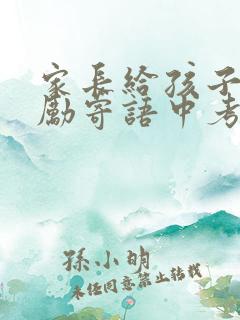 家長給孩子
勵寄語中考
孫小明
未经同意禁止转载